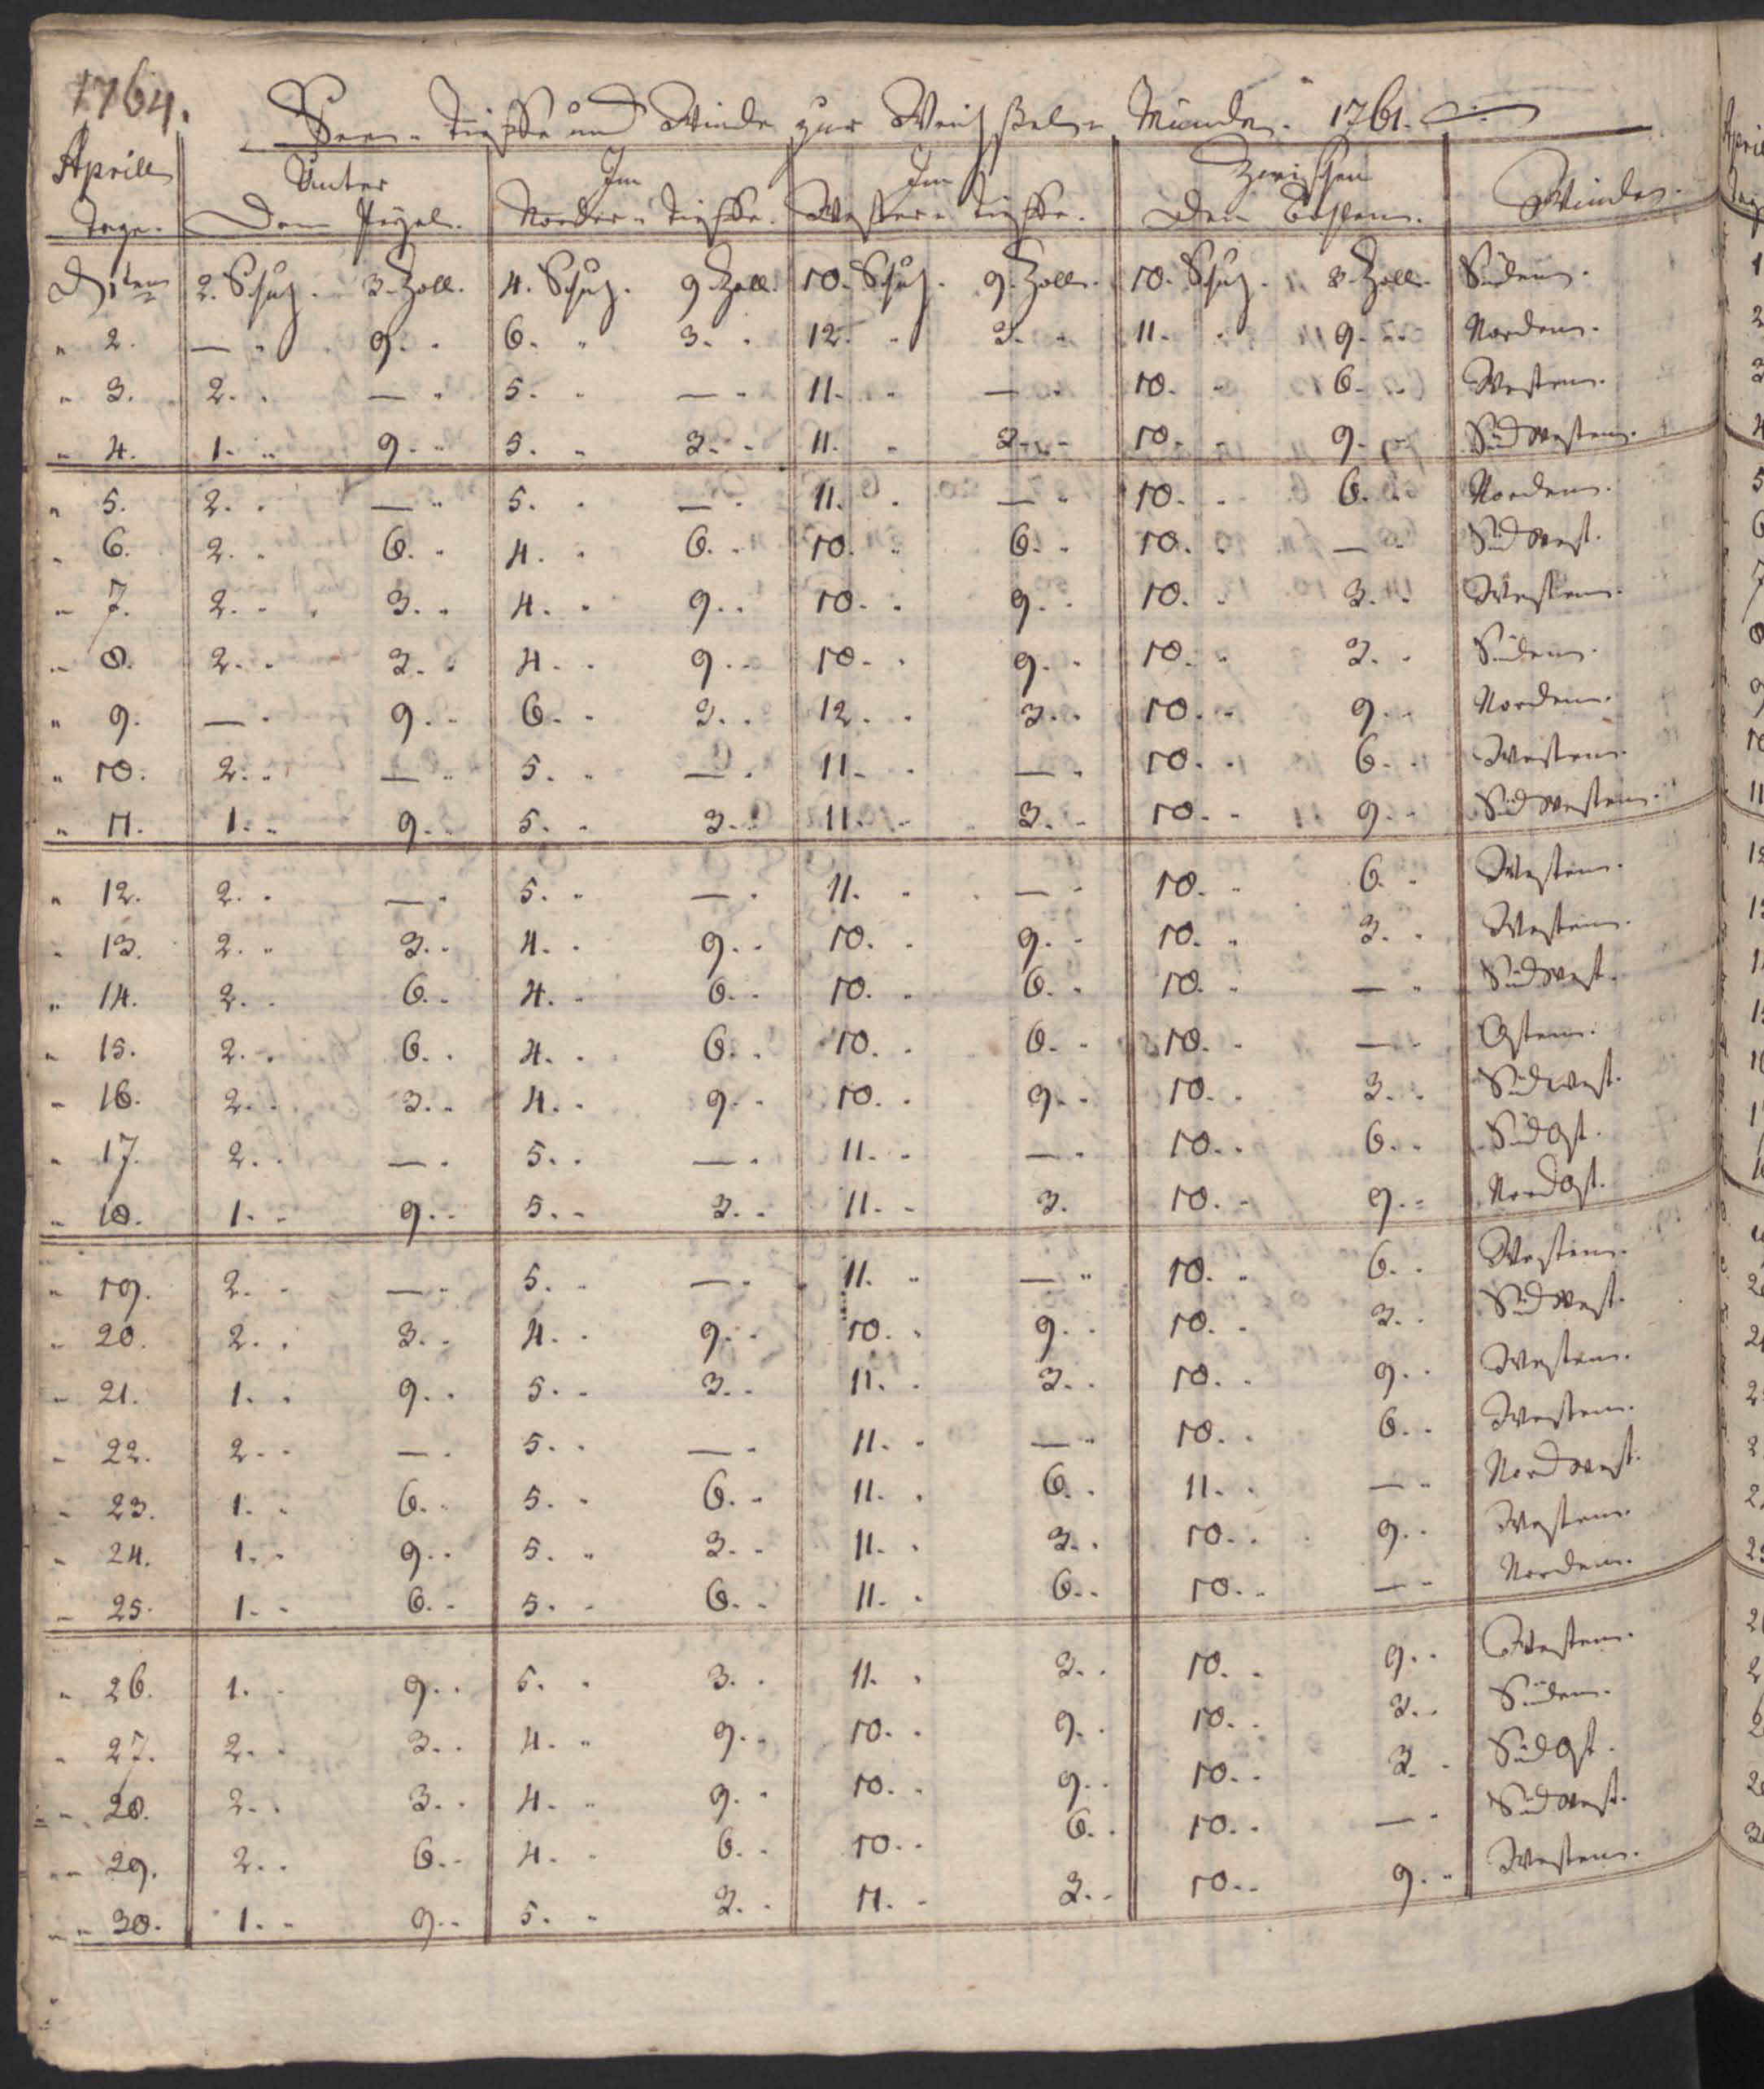 1764.
Seen-Tieffe und Winde zur Weichsel-Münde. 1761.
Aprill Tage. | Unter Dem Pegel. | Im Norder-Tieffe. | Im Wester-Tieffe. | Zwischen Den Bollen. | Winde.
D. 1ten 2. Schuh. 3. Zoll. 4. Schuh. 9. Zoll. 10. Schuh. 9. Zoll. 10. Schuh. 3. Zoll. Süden.
" 2. — " 9. " 6. " 3. " 12. " 3. " 11. " 9. " Norden.
" 3. 2. " — " 5. " — " 11. " — " 10. " 6. " Westen.
" 4. 1. " 9. " 5. " 3. " 11. " 3. " 10. " 9. " Südwesten.
" 5. 2. " — " 5. " — " 11. " — " 10. " 6. " Norden.
" 6. 2. " 6. " 4. " 6. " 10. " 6. " 10. " — " Südwest.
" 7. 2. " 3. " 4. " 9. " 10. " 9. " 10. " 3. " Westen.
" 8. 2. " 3. " 4. " 9. " 10. " 9. " 10. " 3. " Süden.
" 9. — " 9. " 6. " 3. " 12. " 3. " 10. " 9. " Norden.
" 10. 2. " — " 5. " — " 11. " — " 10. " 6. " Westen.
" 11. 1. " 9. " 5. " 3. " 11. " 3. " 10. " 9. " Südwesten.
" 12. 2. " — " 5. " — " 11. " — " 10. " 6. " Westen.
" 13. 2. " 3. " 4. " 9. " 10. " 9. " 10. " 3. " Westen.
" 14. 2. " 6. " 4. " 6. " 10. " 6. " 10. " — " Südwest.
" 15. 2. " 6. " 4. " 6. " 10. " 6. " 10. " — " Osten.
" 16. 2. " 3. " 4. " 9. " 10. " 9. " 10. " 3. " Südwest.
" 17. 2. " — " 5. " — " 11. " — " 10. " 6. " Südost.
" 18. 1. " 9. " 5. " 3. " 11. " 3. 10. " 9. " Nordost.
" 19. 2. " — " 5. " — " 11. " — " 10. " 6. " Westen.
" 20. 2. " 3. " 4. " 9. " 10. " 9. " 10. " 3. " Südwest.
" 21. 1. " 9. " 5. " 3. " 11. " 3. " 10. " 9. " Westen.
" 22. 2. " — " 5. " — " 11. " — " 10. " 6. " Westen.
" 23. 1. " 6. " 5. " 6. " 11. " 6. " 11. " — " Nordwest.
" 24. 1. " 9. " 5. " 3. " 11. " 3. " 10. " 9. " Westen.
" 25. 1. " 6. " 5. " 6. " 11. " 6. " 10. " — " Norden.
" 26. 1. " 9. " 5. " 3. " 11. " 3. " 10. " 9. " Westen.
" 27. 2. " 3. " 4. " 9. " 10. " 9. " 10. " 3. " Süden.
" 28. 2. " 3. " 4. " 9. " 10. " 9. " 10. " 3. " Südost.
" 29. 2. " 6. " 4. " 6. " 10. " 6. " 10. " — " Südwest.
" 30. 1. " 9. " 5. " 3. " 11. " 3. " 10. " 9. " Westen.